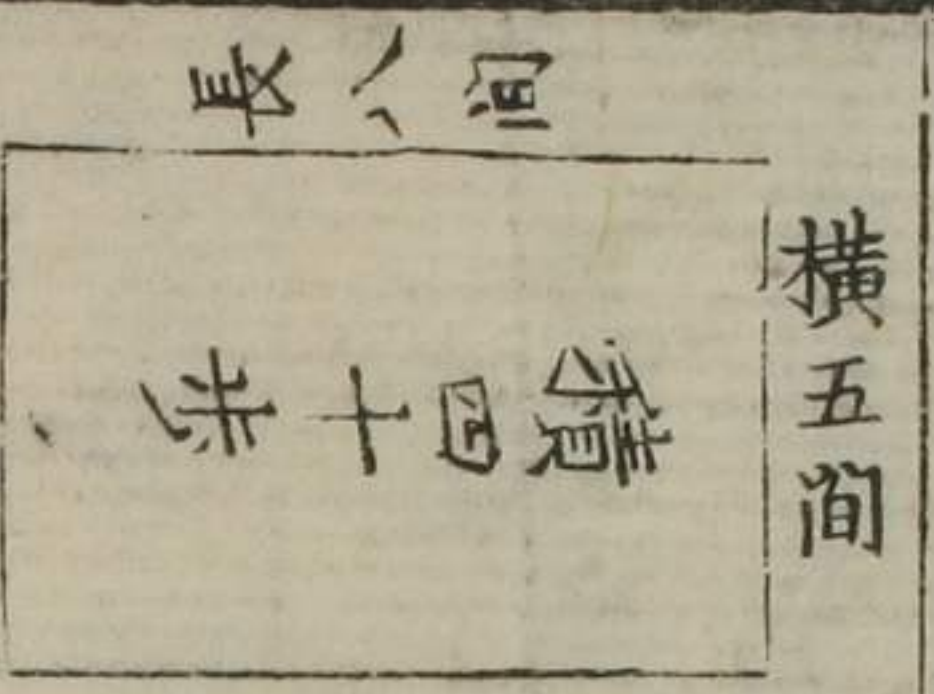 長八間
横五間
積四十歩